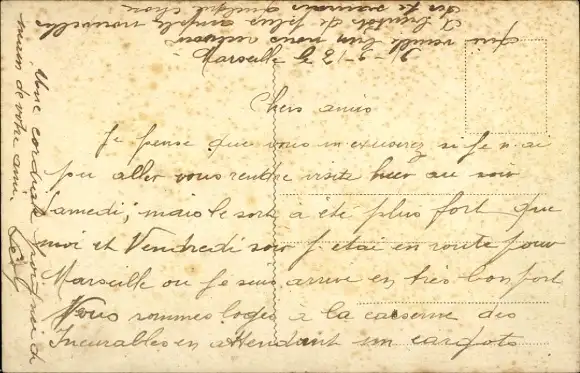 Marseille le 31-5-15
Chers amis
Je pense que vous m'excuserez si je n'ai
pu aller vous rendre visite hier au soir
Samedi; mais le sort a été plus fort que
moi et Vendredi soir j'étai en route pour
Marseille ou je suis arrivé en très bon port
Nous sommes logés à la caserne des
Incurables en attendant un
qui veuille bien nous
A bientôt de plus amples nouvelles
quelque chose
Une cordiale poignée de
main de votre ami.